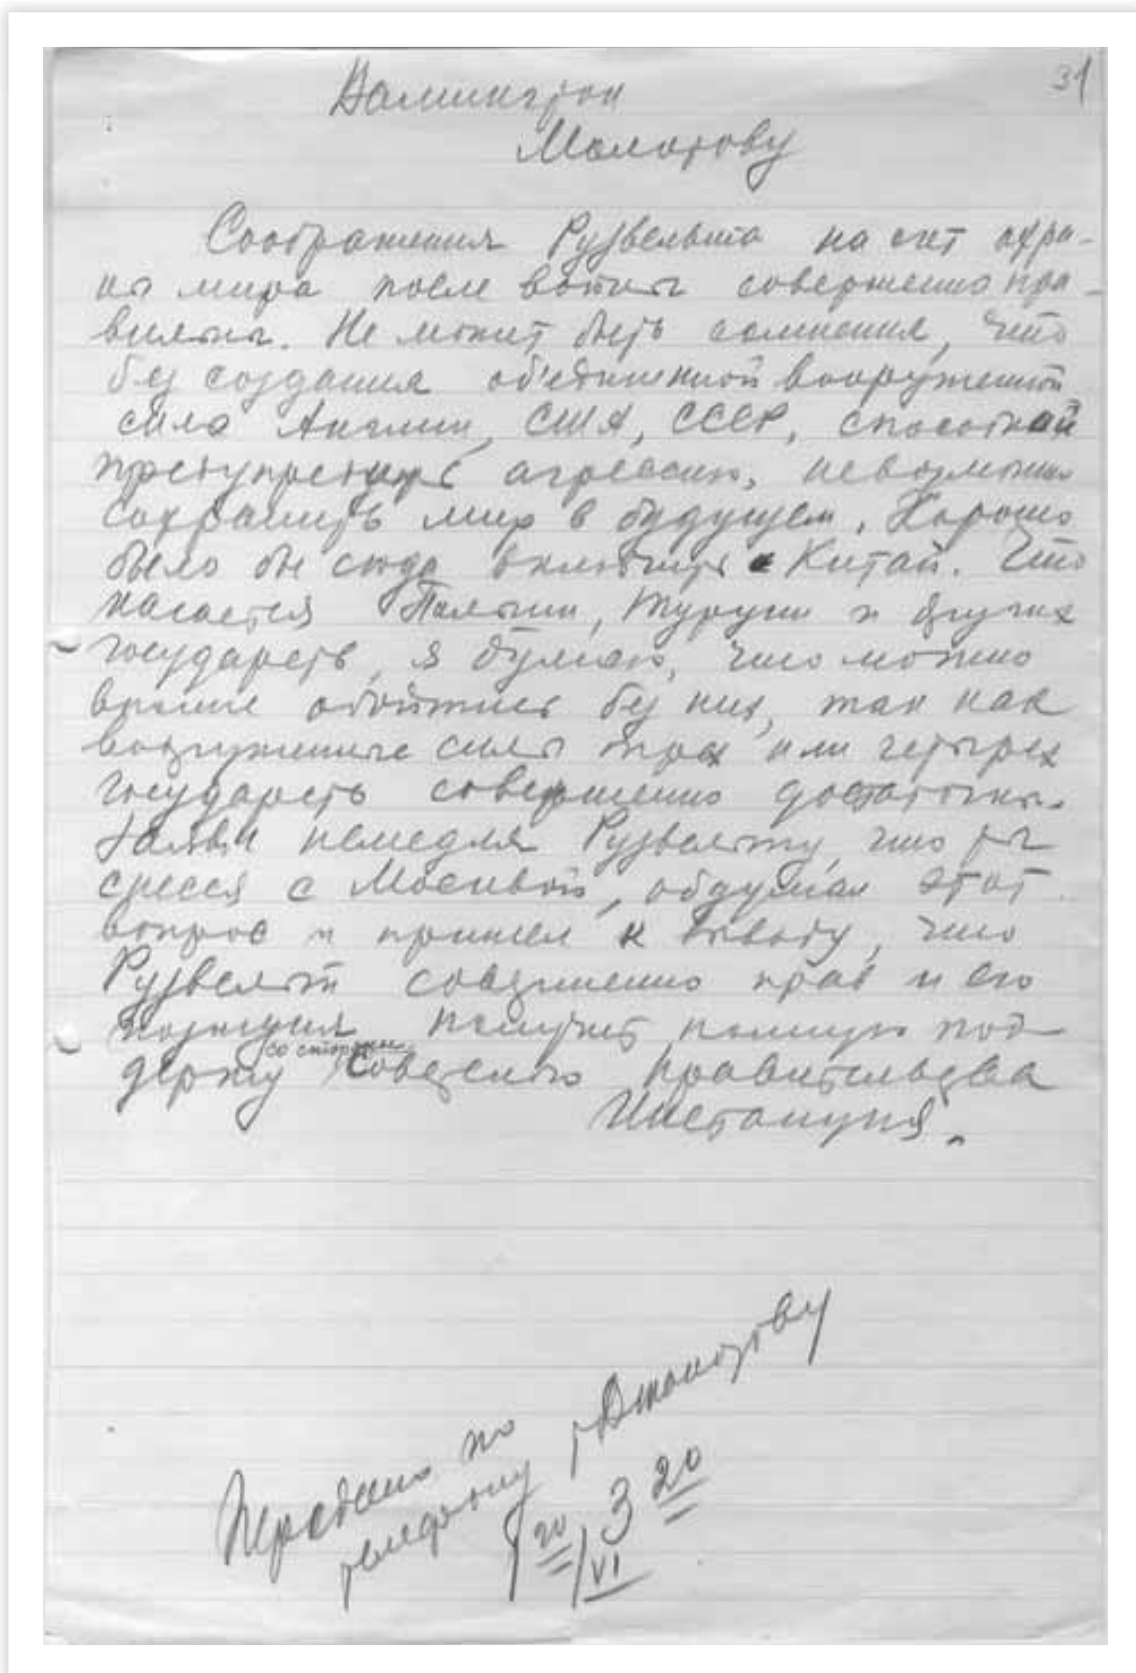 31
Вашингтон
Молотову
Соображения Рузвельта на счет охра-
ны мира после войны совершенно пра-
вильны. Не может быть сомнения, что
без создания об'единенной вооруженной
силы Англии, США, СССР, способной
предупредить агрессию, невозможно
сохранить мир в будущем. Хорошо
было бы сюда включить Китай. Что
касается Польши, Турции и других
государств, я думаю, что можно
вполне обойтись без них, так как
вооруженные силы трех или четырех
государств совершенно достаточны.
Заяви немедля Рузвельту, что ты
снесся с Москвой, обдумал этот
вопрос и пришел к выводу, что
Рузвельт совершенно прав и его
позиция получит полную под-
держку со стороны Советского правительства
Инстанция.
Передано по
телефону
VI 3 20